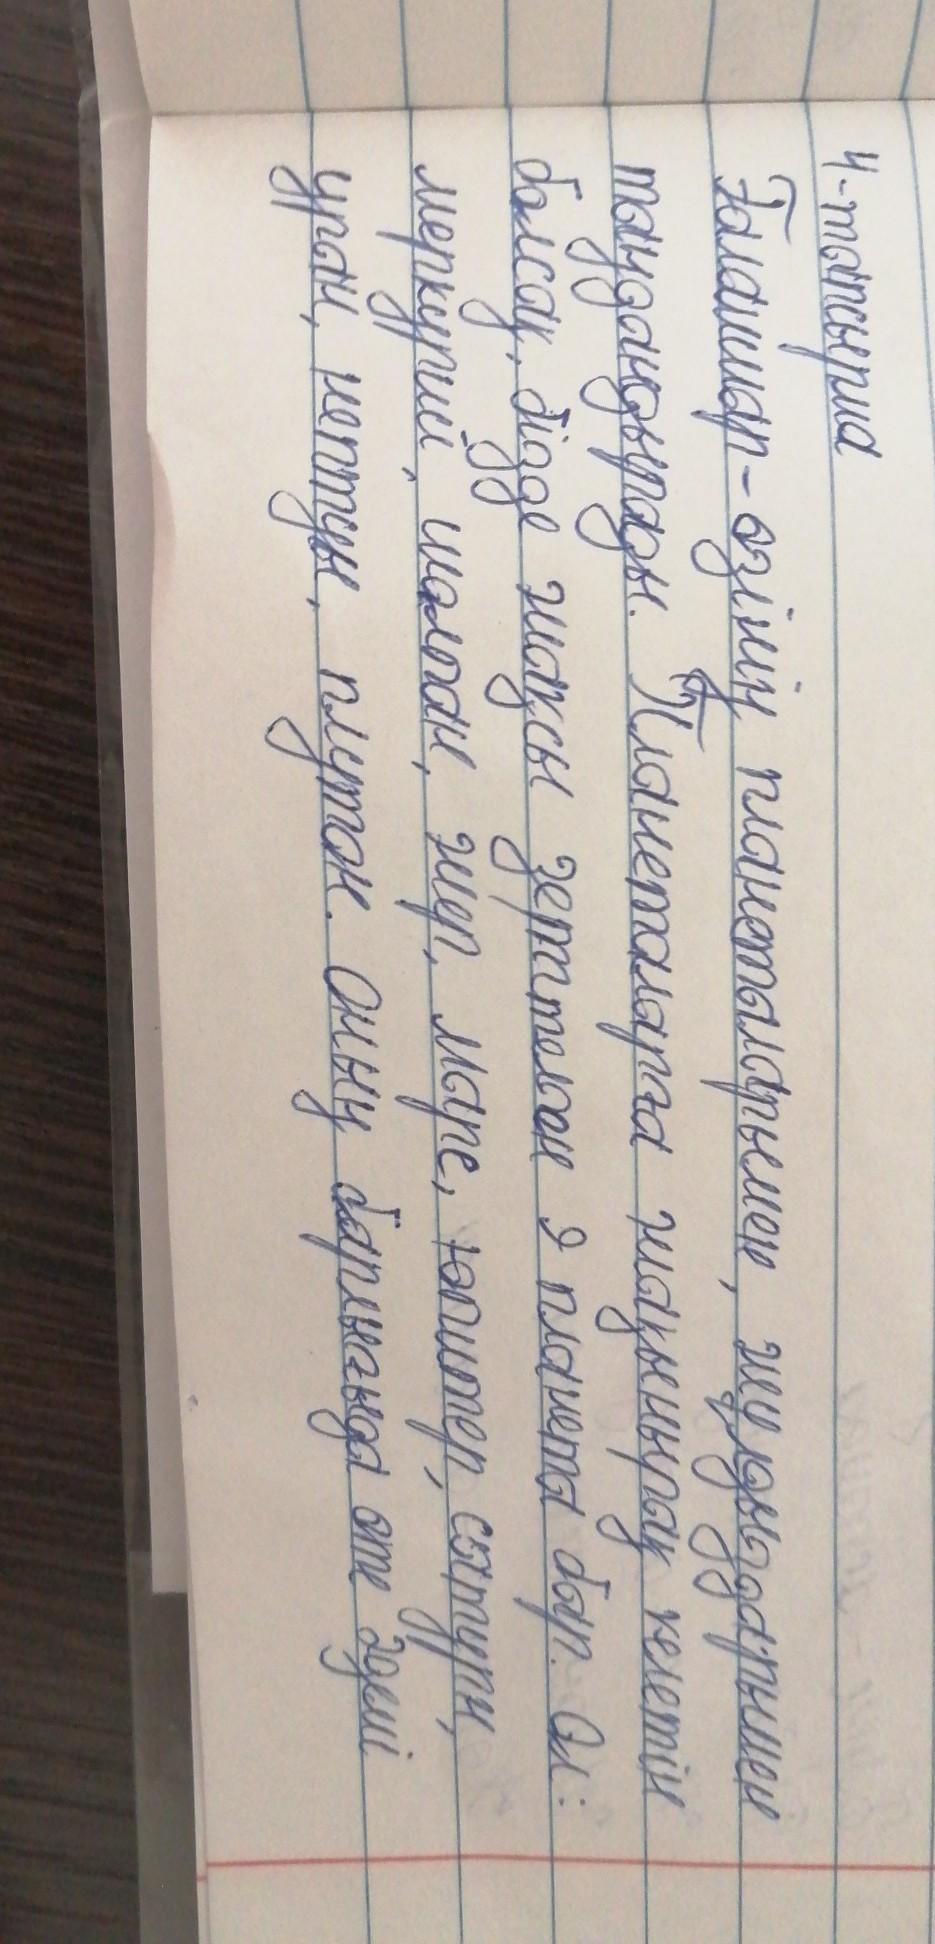 4-тапсырма
Ғалашар-өзінің планеталарымен, жұлдыздарымен
таңдандырады. Планеталарға жақынырақ келетін
болсақ, бізде жақсы зерттелген 9 планета бар. Ол:
меркурий, шолпан, жер, марс, юпитер, сатурн,
уран, нептун, плутон. Оның барлығыда өте әдемі